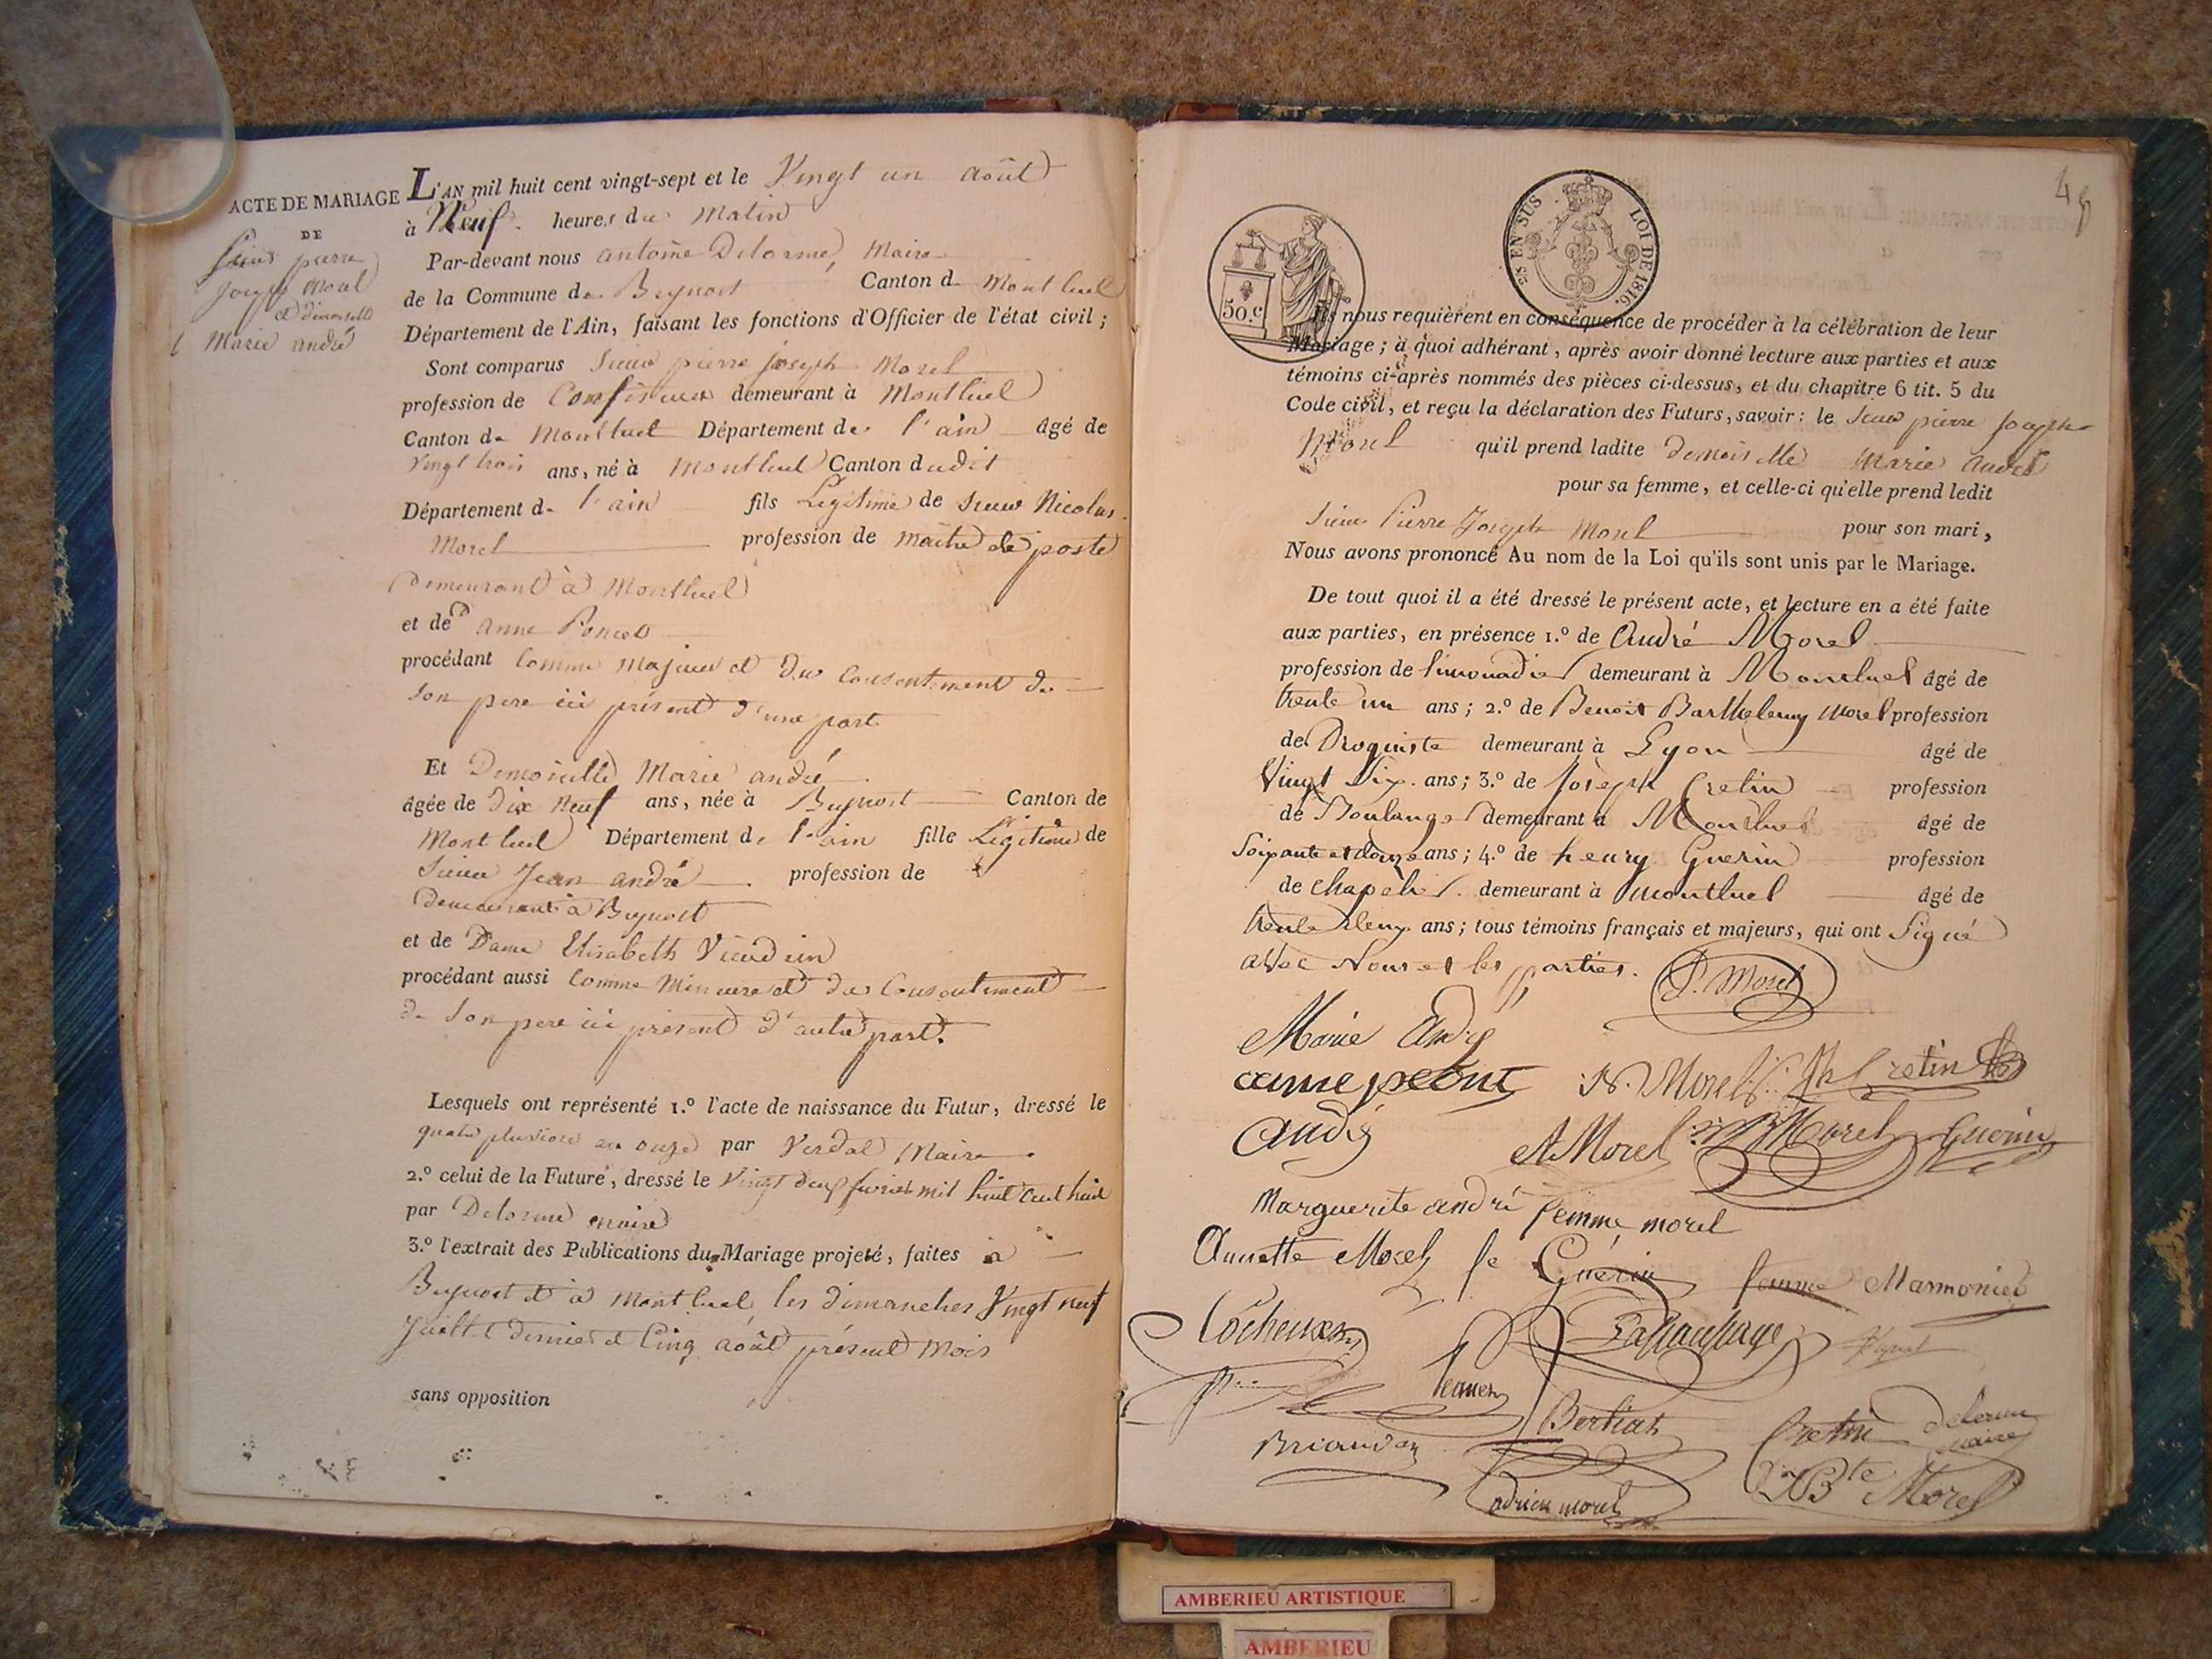 ACTE DE MARIAGE
DE
Sieur pierre
joseph Morel
et demoiselle
Marie andré
L'AN mil huit cent vingt-sept et le Vingt un août
à Neuf heures du Matin
Par-devant nous antoine Delorme, Maire
de la Commune de Beynost Canton de Montluel
Département de l'Ain, faisant les fonctions d'Officier de l'état civil ;
Sont comparus Sieur pierre joseph Morel
profession de Confiseur demeurant à Montluel
Canton de Montluel Département de l'ain âgé de
Vingt trois ans, né à Montluel Canton dudit
Département de l'ain fils Légitime de Sieur Nicolas
Morel profession de maître de poste
Demeurant à Montluel
et de anne Poncet
procédant Comme Majeur et du Consentement de
son pere ici présent d'une part
Et Demoiselle Marie andré
âgée de dix Neuf ans, née à Beynost Canton de
Montluel Département de l'ain fille Légitime de
Sieur Jean andré profession de
Demeurant à Beynost
et de Dame Elisabeth
procédant aussi Comme Mineure et du Consentement
de Son pere ici présent d'autre part.
Lesquels ont représenté 1.º l'acte de naissance du Futur, dressé le
quatre pluviose an onze par Verdat, Maire
2.º celui de la Future, dressé le Vingt deux fevrier mil huit cent huit
par Delorme maire
3.º l'extrait des Publications du Mariage projeté, faites à
Beynost et à Montluel les dimanches Vingt neuf
Juillet dernier et Cinq août présent Mois
sans opposition
45
ES EN SUS LOI DE 1816.
50.c
Ils nous requièrent en conséquence de procéder à la célébration de leur
Mariage ; à quoi adhérant, après avoir donné lecture aux parties et aux
témoins ci-après nommés des pièces ci-dessus, et du chapitre 6 tit. 5 du
Code civil, et reçu la déclaration des Futurs, savoir : le Sieur pierre Joseph
Morel qu'il prend ladite demoiselle Marie André
pour sa femme, et celle-ci qu'elle prend ledit
Sieur Pierre Joseph Morel pour son mari,
Nous avons prononcé Au nom de la Loi qu'ils sont unis par le Mariage.
De tout quoi il a été dressé le présent acte, et lecture en a été faite
aux parties, en présence 1.º de André Morel
profession de limonadier demeurant à Montluel âgé de
trente un ans ; 2.º de Benoit Barthelemy Morel profession
de Droguiste demeurant à Lyon âgé de
Vingt Six ans ; 3.º de Joseph Cretin profession
de Boulanger demeurant à Montluel âgé de
Soixante et douze ans ; 4.º de henry Guerin profession
de chapelier demeurant à Montluel âgé de
trente deux ans ; tous témoins français et majeurs, qui ont Signé
avec Nous et les parties.
P. Morel
Marie André
anne
N. Morel Jh Cretin
André
A Morel Morel Guerin
Marguerite andré femme morel
Annette Morel fe Guérin femme Marmonier
Bertiat
Briandas
Cretin Delorme
maire
adrien morel
JBte Morel
AMBERIEU ARTISTIQUE
AMBERIEU